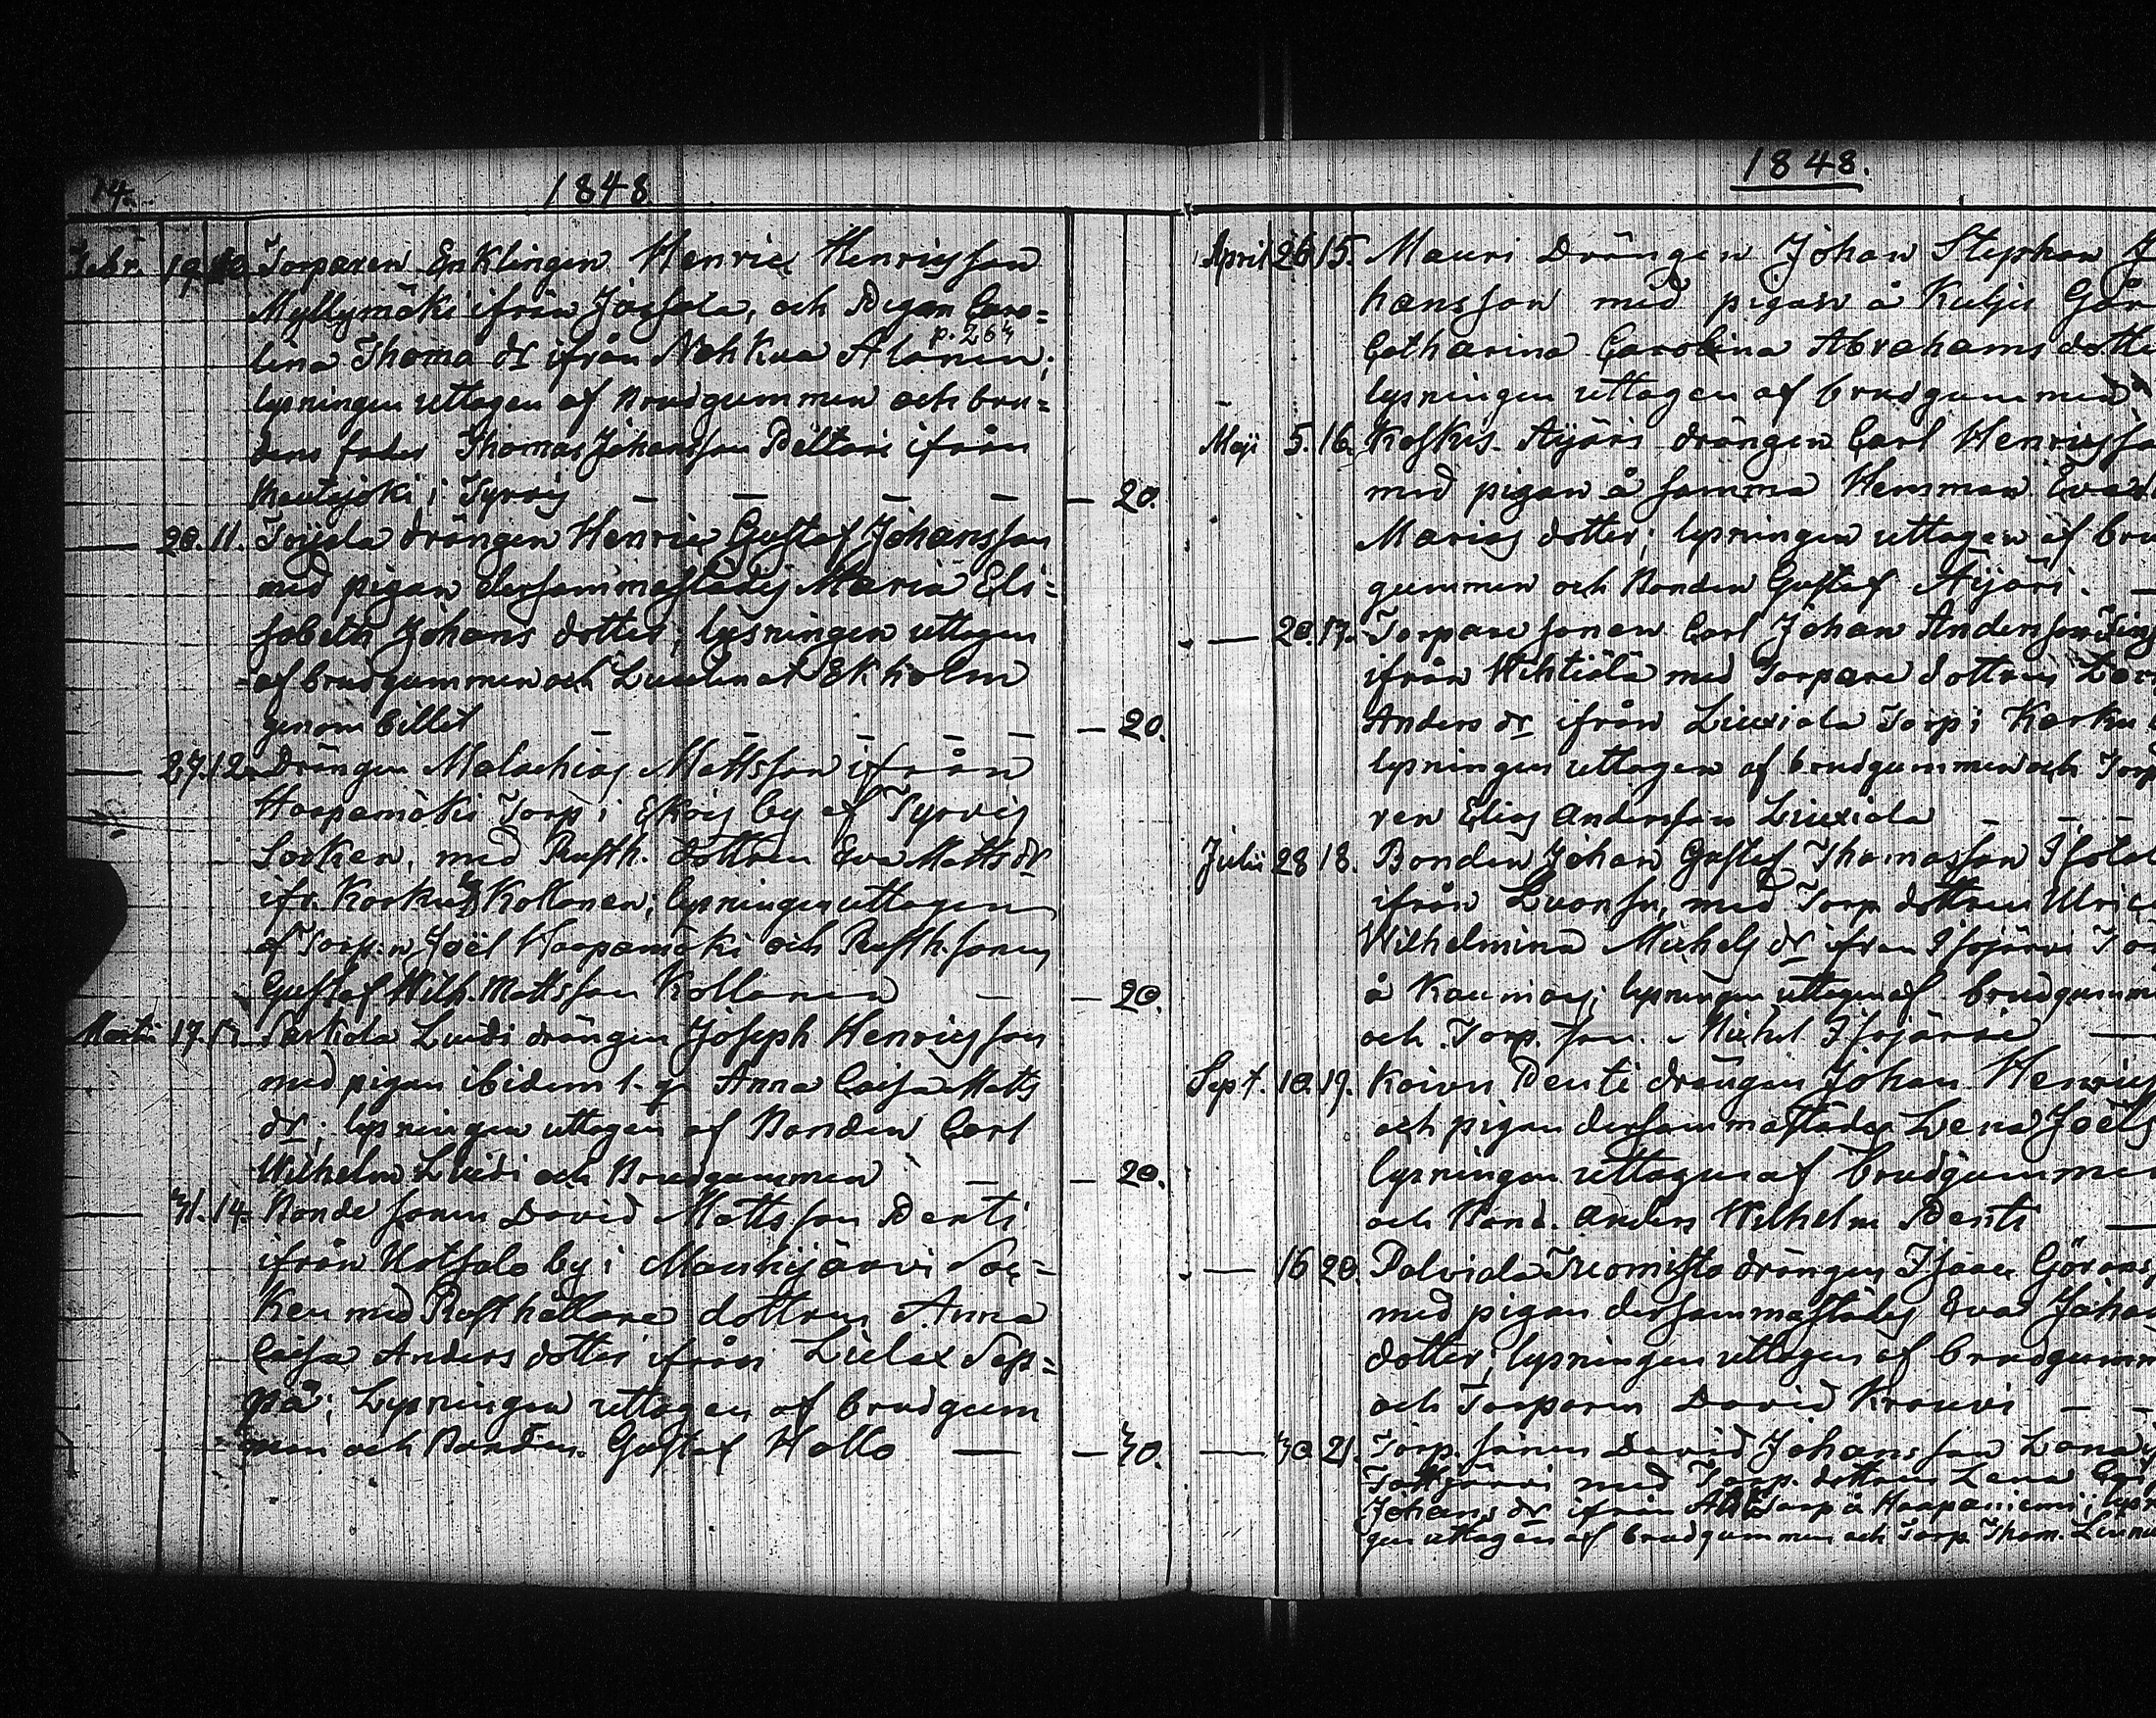 14. 1848
Febr. 19. 10. Torparen Enklingen Henric Henricsson
Myllymäki ifrån Jaesala, och Pigan Caro=
p. 264
lina Thoma dr ifrån Nohkua Alanen;
lysningen uttagen af Brudgummen och bru=
dens fader Thomas Johansson Pelttari ifrån
Kautajoki i Tyrvis — — — — — 20.
— 20. 11. Toijala drängen Henric Gustaf Johansson
med pigan dersammastädes Maria Eli=
sabeth Johans dotter; lysningen uttagen
af brudgummen och Ekholm
genom billet — — — — — 20.
— 27. 12. Drängen Malachias Mattsson ifrån
Haapamäki Torp i Ekois by af Tyrvis
Socken, med Rusth. dottren Eva Matts dr
ifr. Karku Koltanen; lysningen uttagen
af Torp.n Joël Haapamäki och Rusth. sonen
Gustaf Wilh. Mattsson Kollanen — — 20.
Martii 17. 13. Sarkola Luudi drängen Joseph Henricsson
med pigan ibidem Anna Caisa Matts
dr; lysningen uttagen af Bonden Carl
Wilhelm Luudi och Brudgummen — — 20.
— 31. 14. Bonde sonen David Mattsson Penti
ifrån by i Mouhijärvi Soc=
ken med Rusthållare dottren Anna
Caisa Anders dotter ifrån Lielax Sep=
pä; Lysningen uttagen af brudgum
men och Bonden Gustaf Hollo — — 30.
1848.
April 26 15. Mauri Drängen Johan Stephan Jo
hansson med pigan å Kulju Går
Catharina Carolina Abrahams dotte
lysningen uttagen af brudgummen
Maji 5. 16. Koskis Äijäri drängen Carl Henricsso
med pigan å samma Hemman Eva
Marias dotter; lysningen uttagen af bru
gummen och Bonden Gustaf Äijäri. —
— 20. 17. Torpare sonen Carl Johan Andersson
ifrån Wihtiälä med Torpare dottren
Anders dr ifrån Liuxiala Torp i Karku
lysningen uttagen af brudgummen och Torp
ren Elias Andersson Liuxiala — — —
Julii 28 18. Bonden Johan Gustaf Thomasson Isotal
ifrån Kuonsu, med Torp dottren Ulric
Wilhelmina Michels dr ifrån Isojärvi Tor
å Kauniais; lysningen uttagen af brudgumm
och Torp. son. Michel Isojärvi —
Sept. 10. 19. Koivu Penti drängen Johan Henrics
och pigan dersammastädes Lena Joëls
lysningen uttagen af brudgumme
och Bond. Anders Wilhelm Penti —
— 16 20. Palviala Tuomisto drängen Isaac Görans
med pigan dersammastädes Eva Johan
dotter; lysningen uttagen af brudgumm
och Torparen David Krouvi — —
— 30 21. Torp. sonen David Johansson
med Torp. dottren Lena
Johans dr ifrån Torp å Haapaniemi; lysn
gen uttagen af brudgummen och Torp. Thom.